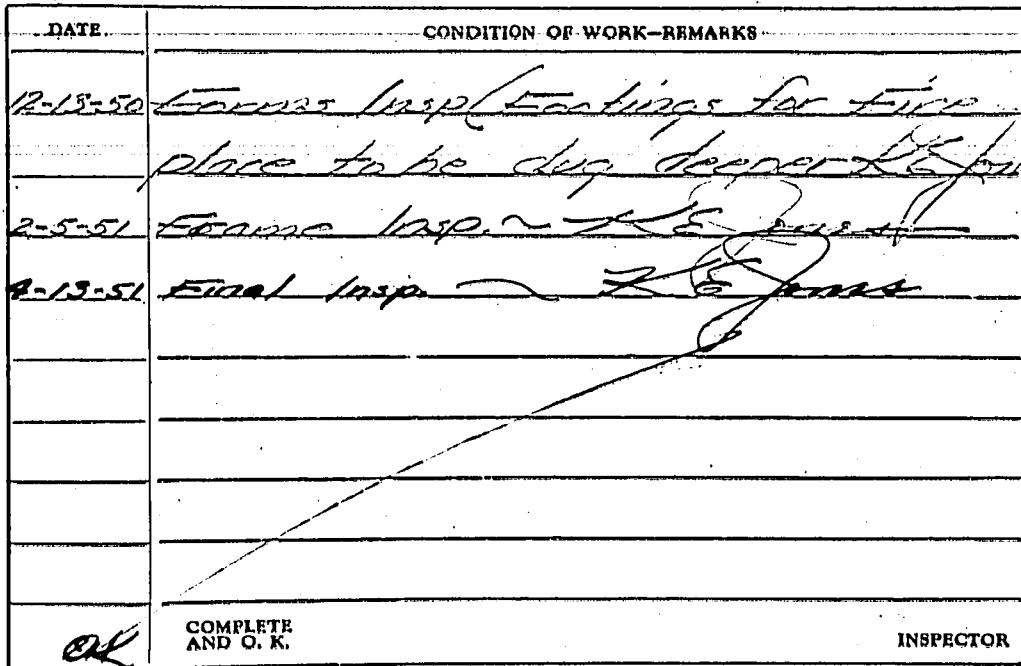 DATE. CONDITION OF WORK—REMARKS
12-13-50 Forms Insp (Footings for Fire
place to be dug deeper KE Jon
2-5-51 Frame Insp. ~ KE Jones
4-13-51 Final Insp. ~ KE Jones
OK COMPLETE AND O. K. INSPECTOR